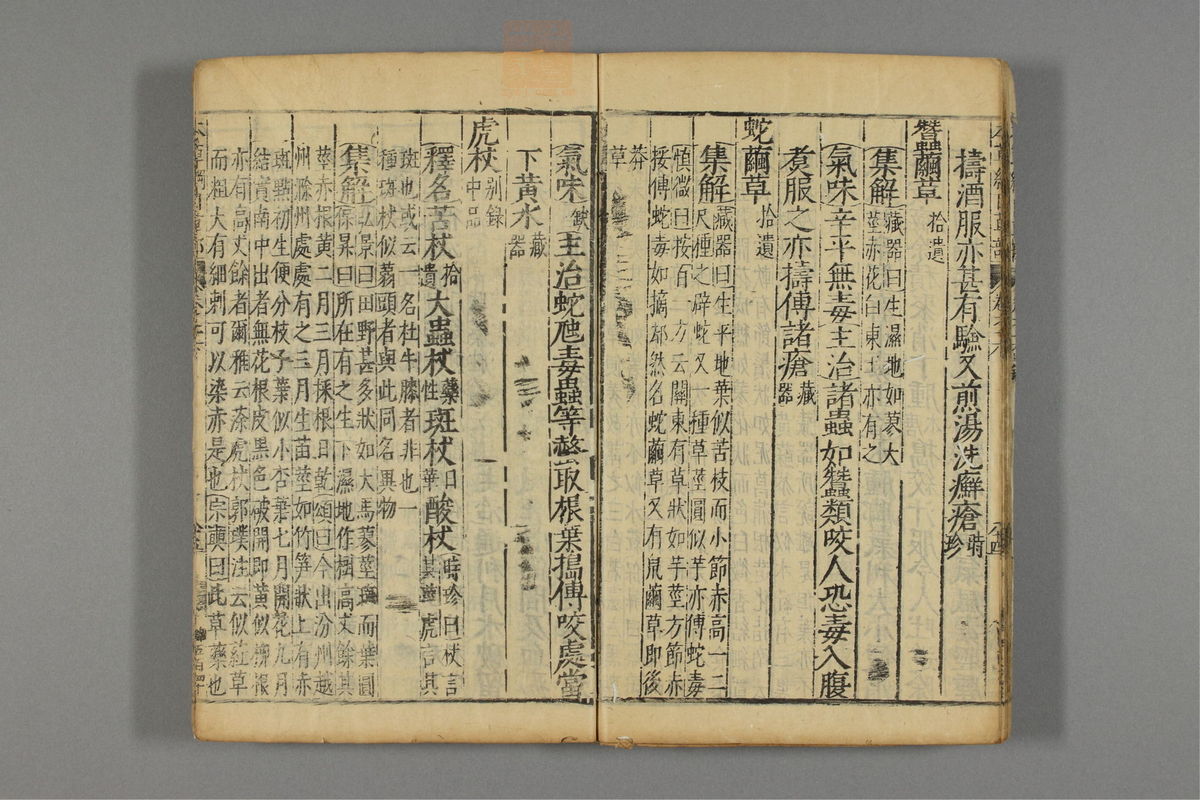 擣酒服亦甚有驗又煎湯洗癬瘡時珍
蠶繭草拾遺
集解藏器曰生濕地如蓼大
莖赤花白東土亦有之
氣味辛平無毒主治諸蟲如蠶類咬人恐毒入腹
煑服之亦擣傅諸瘡藏器
蛇繭草拾遺
集解藏器曰生平地葉似苦枝而小節赤高一二
尺種之辟蛇又一種草莖圓似芋亦傅蛇毒
慎微曰按百一方云關東有草狀如芋莖方節赤
挼傅蛇毒如摘却然名蛇繭草又有鼠繭草即後
莽草
氣味缺主治蛇虺毒蟲等螫取根葉搗傅咬處當
下黄水藏器
虎杖別錄中品
釋名苦杖拾遺大蟲杖藥性斑杖日華酸杖時珍曰杖言其莖虎言其
斑也或云一名杜牛膝者非也一
種斑杖似蒻頭者與此同名異物
集解弘景曰田野甚多狀如大馬蓼莖斑而葉圓
保昇曰所在有之生下濕地作樹高丈餘其
莖赤根黄二月三月採根日乾頌曰今出汾州越
州滁州處處有之三月生苗莖如竹笋狀上有赤
斑點初生便分枝丫葉似小杏葉七月開花九月
結實南中出者無花根皮黑色破開即黄似柳根
亦有高丈餘者爾雅云蒤虎杖郭璞注云似紅草
而粗大有細刺可以染赤是也宗奭曰此草藥也